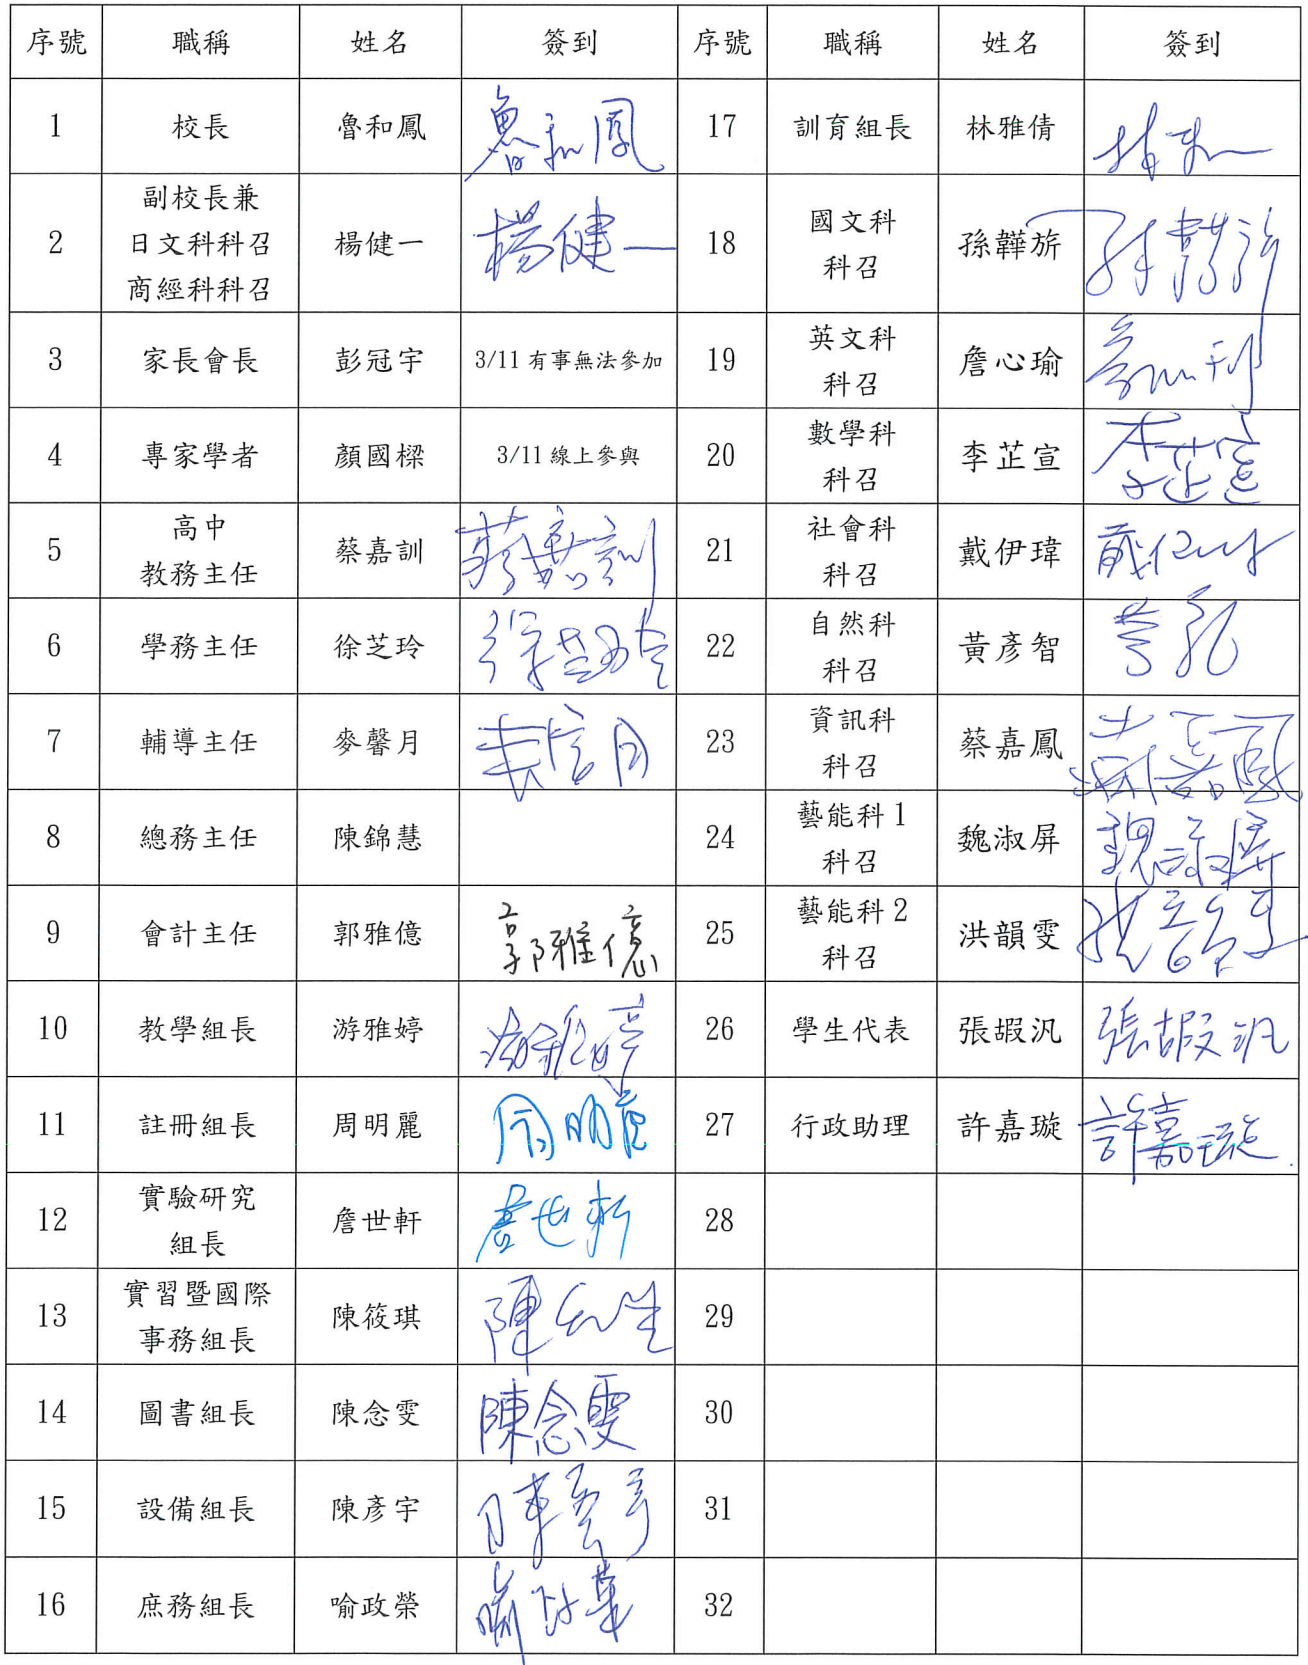 序號 職稱 姓名 簽到 序號 職稱 姓名 簽到
1 校長 魯和鳳 魯和鳳 17 訓育組長 林雅倩
2 副校長兼 日文科科召 商經科科召 楊健一 楊健一 18 國文科 科召 孫韡旂
3 家長會長 彭冠宇 3/11 有事無法參加 19 英文科 科召 詹心瑜
4 專家學者 顏國樑 3/11 線上參與 20 數學科 科召 李芷宣 李芷宣
5 高中 教務主任 蔡嘉訓 蔡嘉訓 21 社會科 科召 戴伊瑋
6 學務主任 徐芝玲 徐芝玲 22 自然科 科召 黃彥智
7 輔導主任 麥馨月 23 資訊科 科召 蔡嘉鳳 蔡嘉鳳
8 總務主任 陳錦慧 24 藝能科1 科召 魏淑屏 魏淑屏
9 會計主任 郭雅億 郭雅億 25 藝能科2 科召 洪韻雯
10 教學組長 游雅婷 游雅婷 26 學生代表 張嘏汎 張嘏汎
11 註冊組長 周明麗 周明麗 27 行政助理 許嘉璇 許嘉璇
12 實驗研究 組長 詹世軒 詹世軒 28
13 實習暨國際 事務組長 陳筱琪 29
14 圖書組長 陳念雯 陳念雯 30
15 設備組長 陳彥宇 陳彥宇 31
16 庶務組長 喻政榮 喻政榮 32